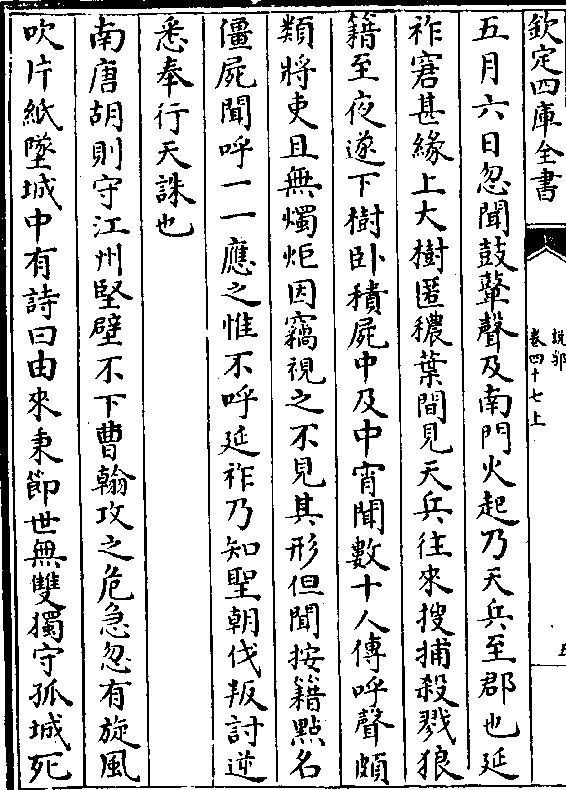 欽定四庫全書
說郛
卷四十七上
五月六日忽聞鼓鼙聲及南門火起乃天兵至郡也延
祚窘甚緣上大樹匿穠葉間見天兵往來搜捕殺戮狼
籍至夜遂下樹卧積屍中及中宵聞數十人傳呼聲頗
類將吏且無燭炬因竊視之不見其形但聞按籍點名
僵屍聞呼一一應之惟不呼延祚乃知聖朝伐叛討逆
悉奉行天誅也
南唐胡則守江州堅壁不下曹翰攻之危急忽有旋風
吹片紙墜城中有詩曰由來秉節世無雙獨守孤城死